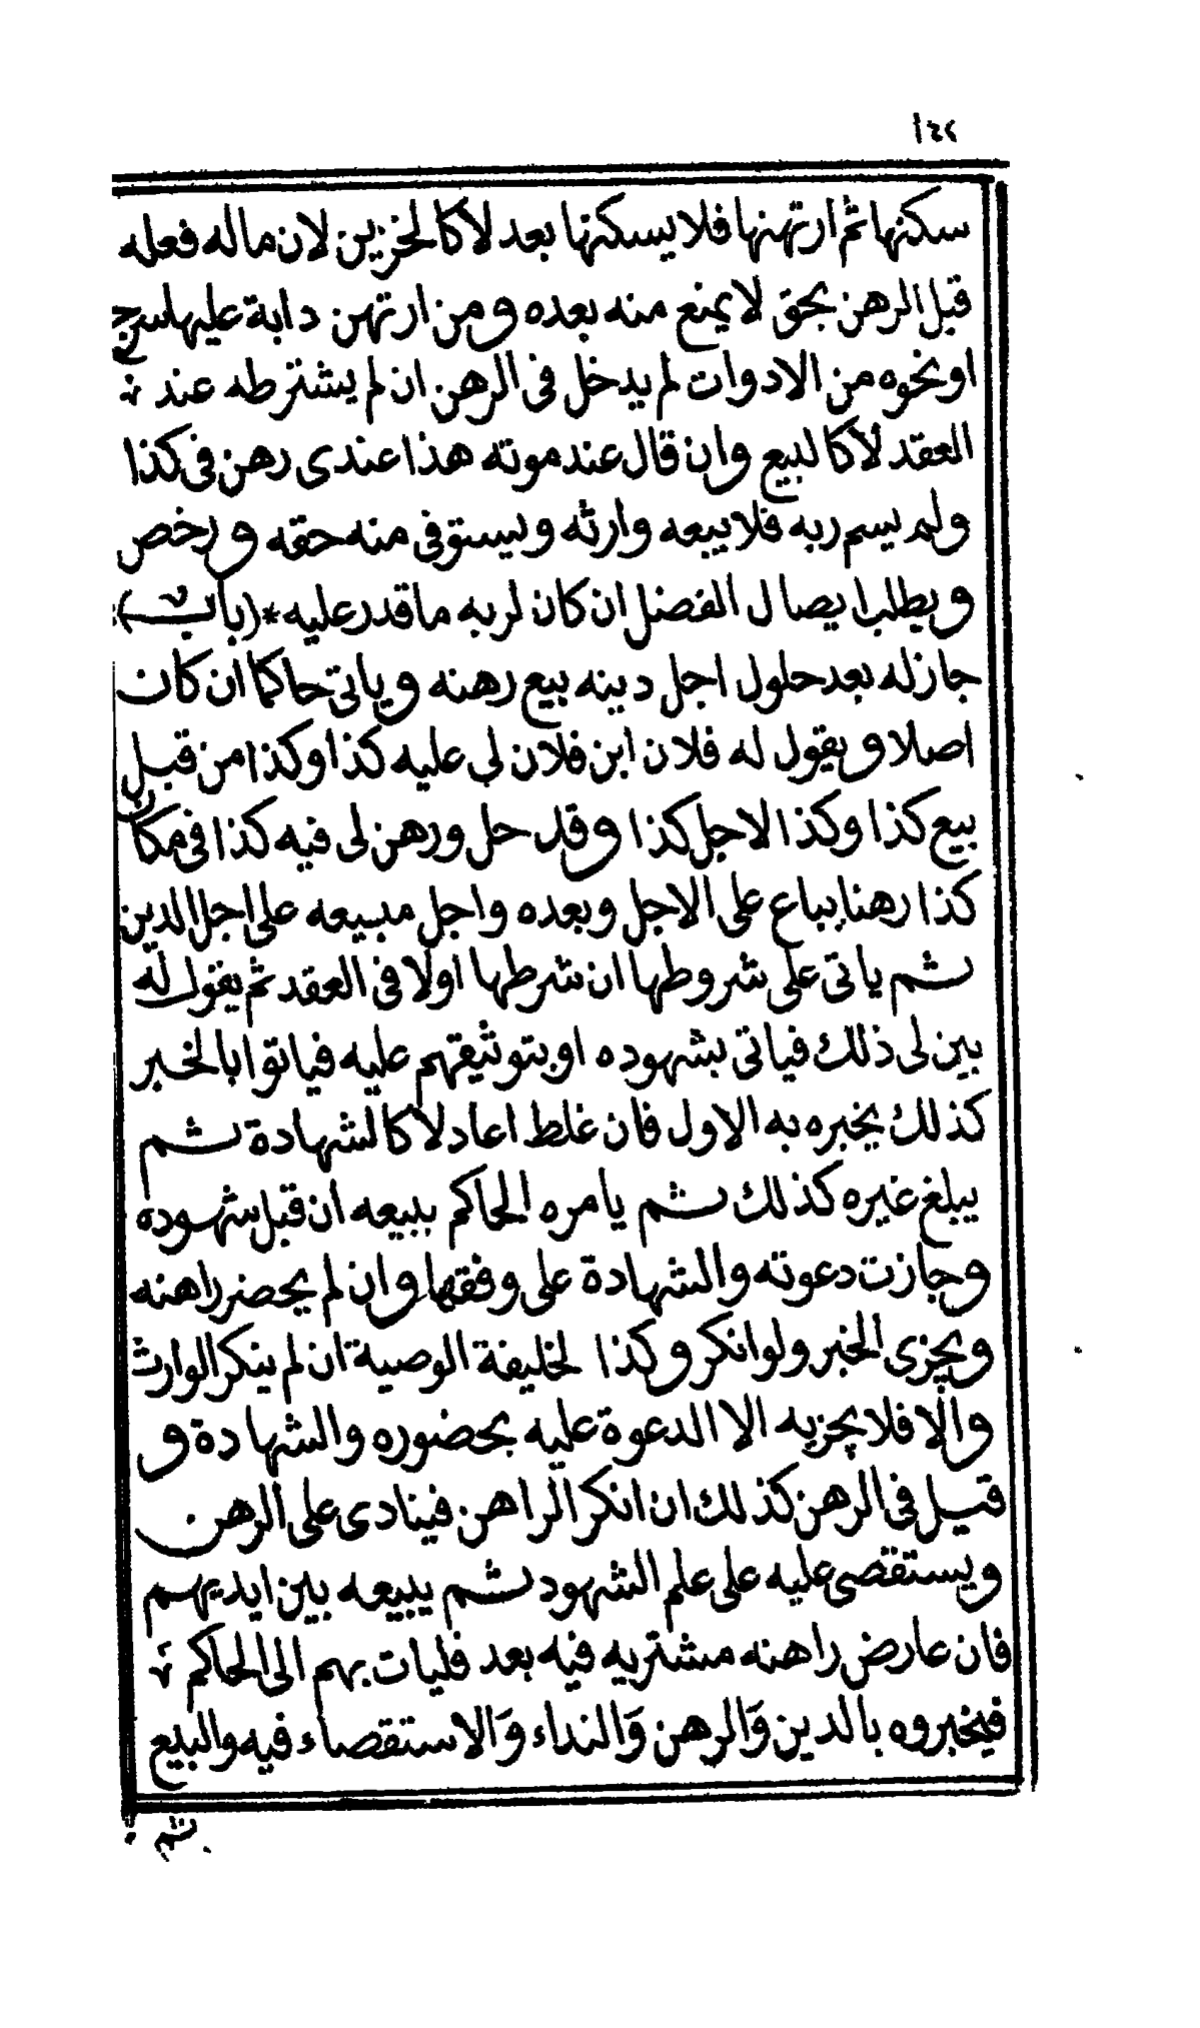 ١٤٢
سكنها ثم ارتهنها فلا يسكنها بعد لا كالخزين لان ماله فعله
قبل الرهن بحق لا يمنع منه بعده ومن ارتهن دابة عليها سرج
او نحوه من الادوات لم يدخل فى الرهن ان لم يشترطه عند
العقد لا كالبيع وان قال عند موته هذا عندى رهن فى كذا
ولم يسم ربه فلا يبيعه وارثه ويستوفى منه حقه ورخص
ويطلب ايصال الفضل ان كان لربه ما قدر عليه * (باب)
جاز له بعد حلول اجل دينه بيع رهنه وياتى حاكما ان كان
اصلا ويقول له فلان ابن فلان لى عليه كذا وكذا من قبل
بيع كذا وكذا الاجل كذا وقد حل ورهن لى فيه كذا فى مكان
كذا رهنا يباع على الاجل وبعده واجل مبيعه على اجل الدين
ثم ياتى على شروطها ان شرطها اولا فى العقد ثم يقول له
بين لى ذلك فياتى بشهوده او بتوثيقهم عليه فياتوا بالخبر
كذلك يخبره به الاول فان غلط اعاد لا كالشهادة ثم
يبلغ غيره كذلك ثم يامره الحاكم ببيعه ان قبل شهوده
وجازت دعوته والشهادة على وفقها وان لم يحضر راهنه
ويجزى الخبر ولو انكر وكذا لخليفة الوصية ان لم ينكر الوارث
والا فلا يجزيه الا الدعوة عليه بحضوره والشهادة و
قيل فى الرهن كذلك ان انكر الراهن فينادى على الرهن
ويستقصى عليه على علم الشهود ثم يبيعه بين ايديهم
فان عارض راهنه مشتريه فيه بعد فليات بهم الى الحاكم
فيخبروه بالدين وَالرهن وَالنداء وَالاستقصاء فيه والبيع
ثم